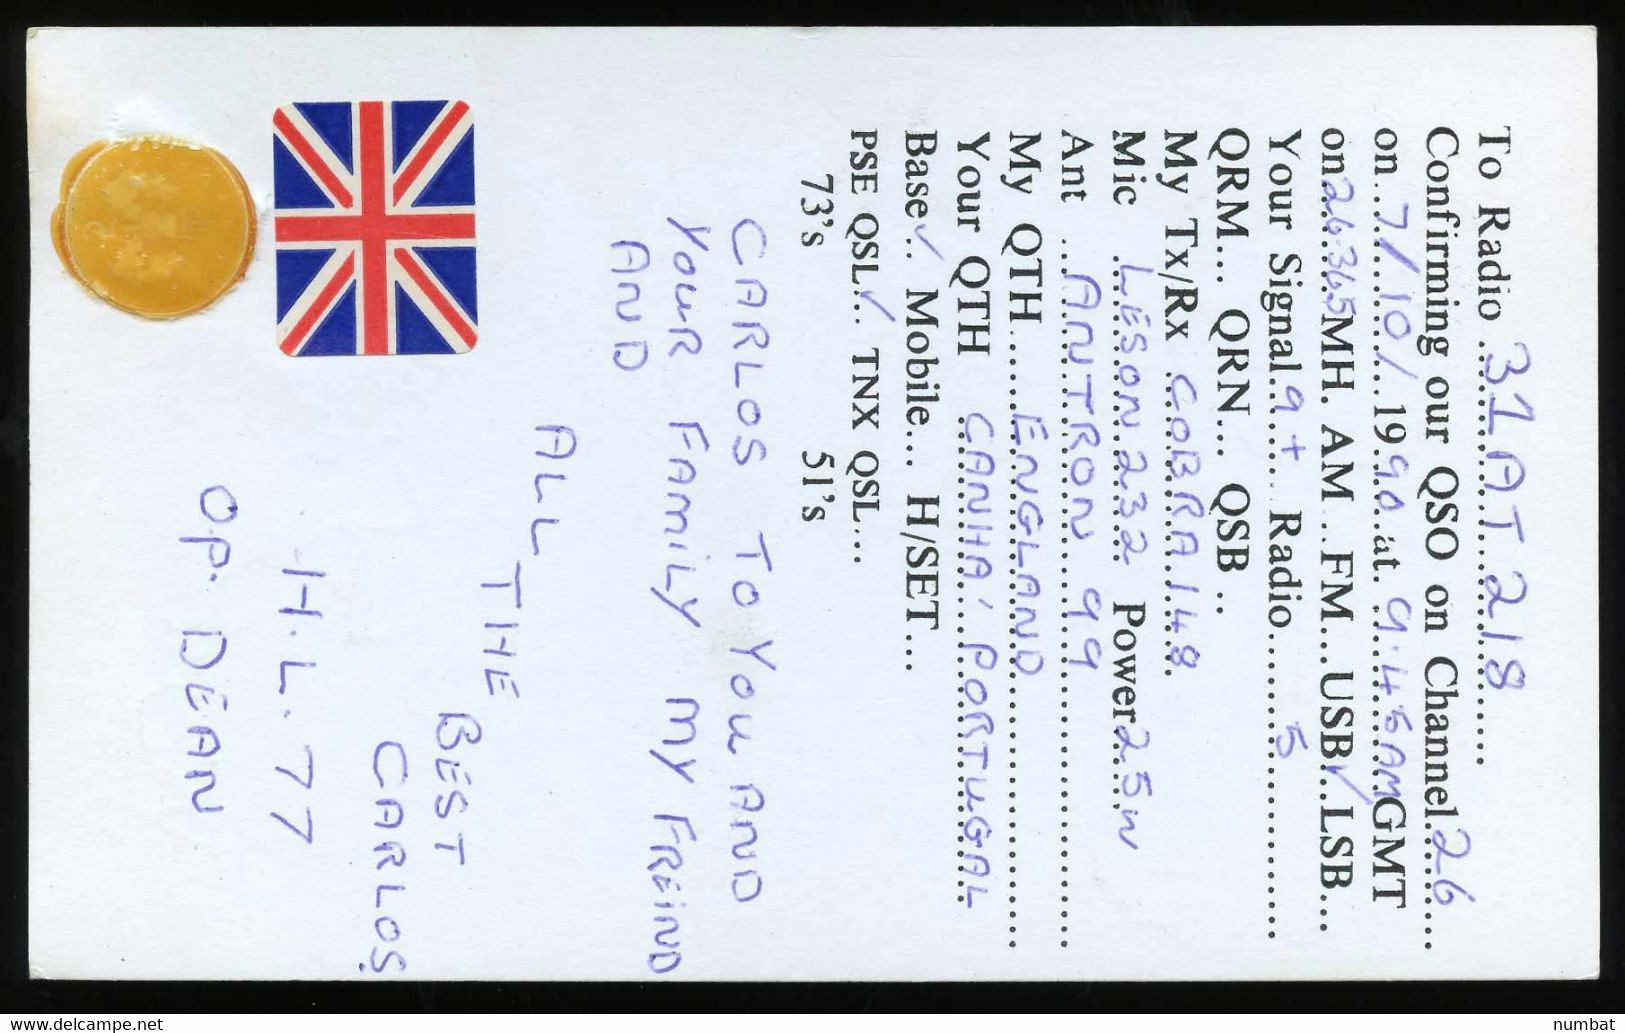 To Radio 31 AT 218
Confirming our QSO on Channel 26
on 7/10/ 1990 at 9.45AM GMT
on 26365 MH. AM .. FM... USB ✓.. LSB...
Your Signal 9+ Radio 5
QRM... QRN... QSB ..
My Tx/Rx COBRA 148
Mic LESON 232 Power 25W
Ant ANTRON 99
My QTH ENGLAND
Your QTH CANHA' PORTUGAL
Base ✓.. Mobile... H/SET...
PSE QSL ✓.. TNX QSL...
73's 51's
CARLOS TO YOU AND
YOUR FAMILY MY FREIND
AND
ALL
THE
BEST
CARLOS
H.L. 77
OP. DEAN
delcampe.net
numbat